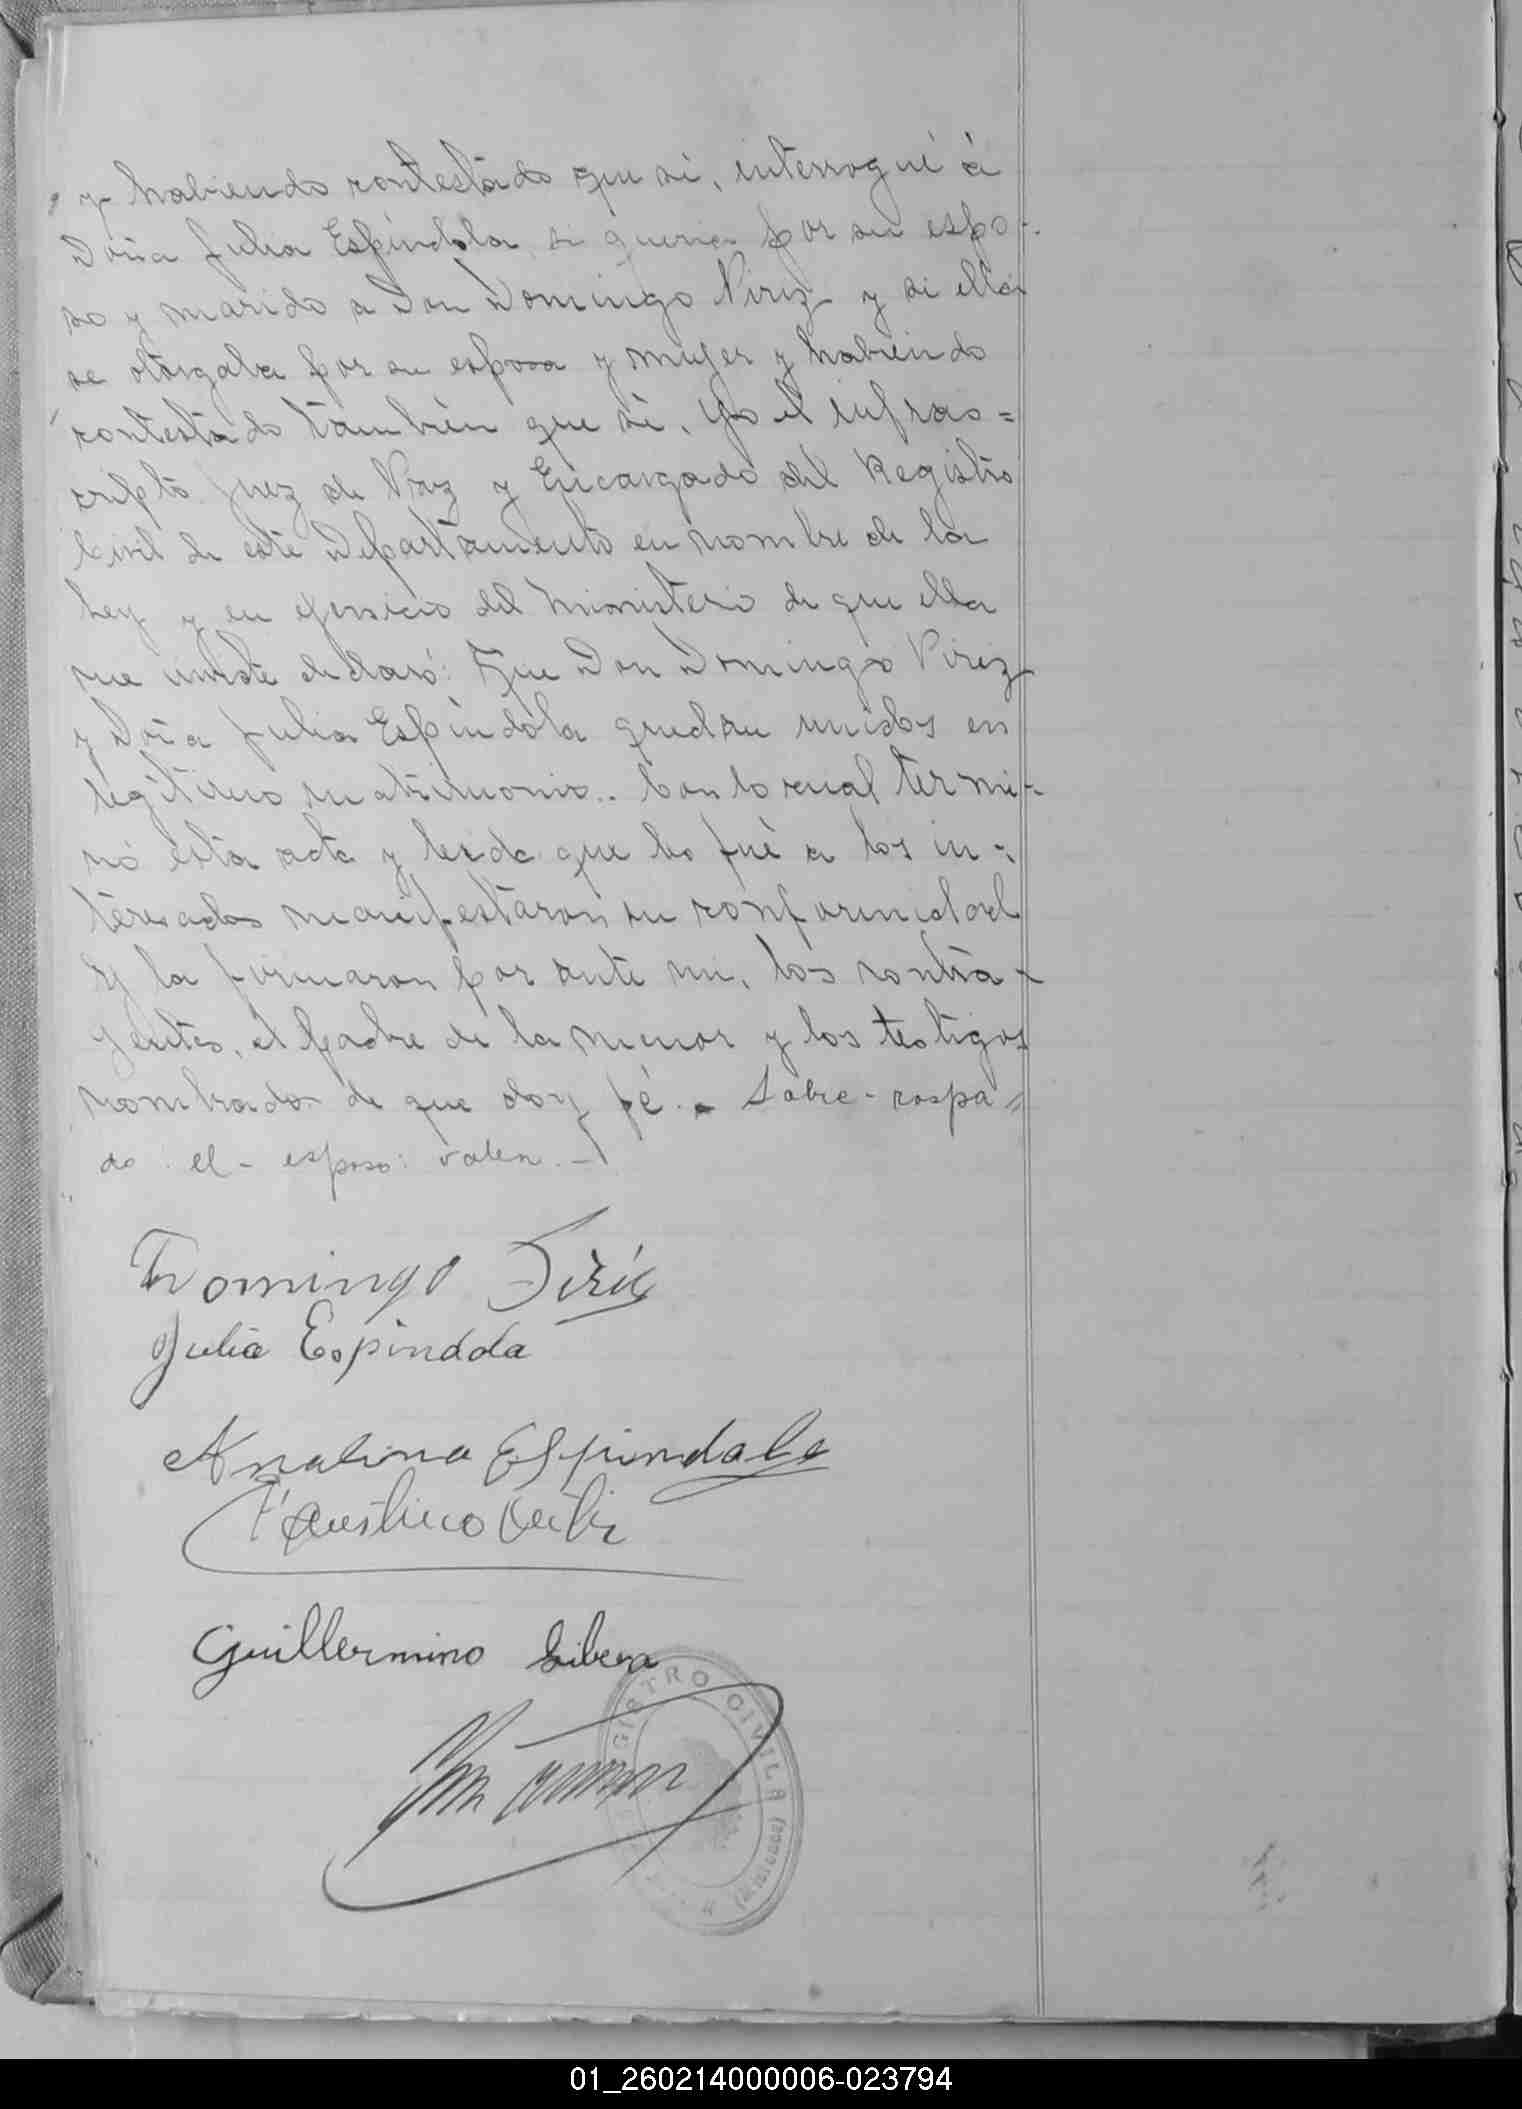 y habiendo contestado que si, interrogué á
Doña Julia Espíndola si queria por su espo-
so y marido a Don Domingo Piriz y si ella
se otorgaba por su esposa y mujer y habiendo
contestado también que si, Yo el infras=
cripto Juez de Paz y Encargado del Registro
Civil de este Departamento en nombre de la
Ley y en ejersicio del Ministerio de que ella
me inviste declaró: Que Don Domingo Piriz
y Doña Julia Espíndola quedan unidos en
legitimo matrimonio.. Con lo cual termi-
nó esta acta y leida que les fué a los in-
teresados manifestaron su conformidad
y la firmaron por ante mi, los contra-
yentes, el padre de la menor y los testigos
nombrados de que doy fé.- Sobre-raspa=
do: el - esposo: valen.-
Domingo Piríz
Julia Espíndola
Espindola
Faustino
Guillermino Libera
REGISTRO CIVIL
(Misiones)
01_260214000006-023794